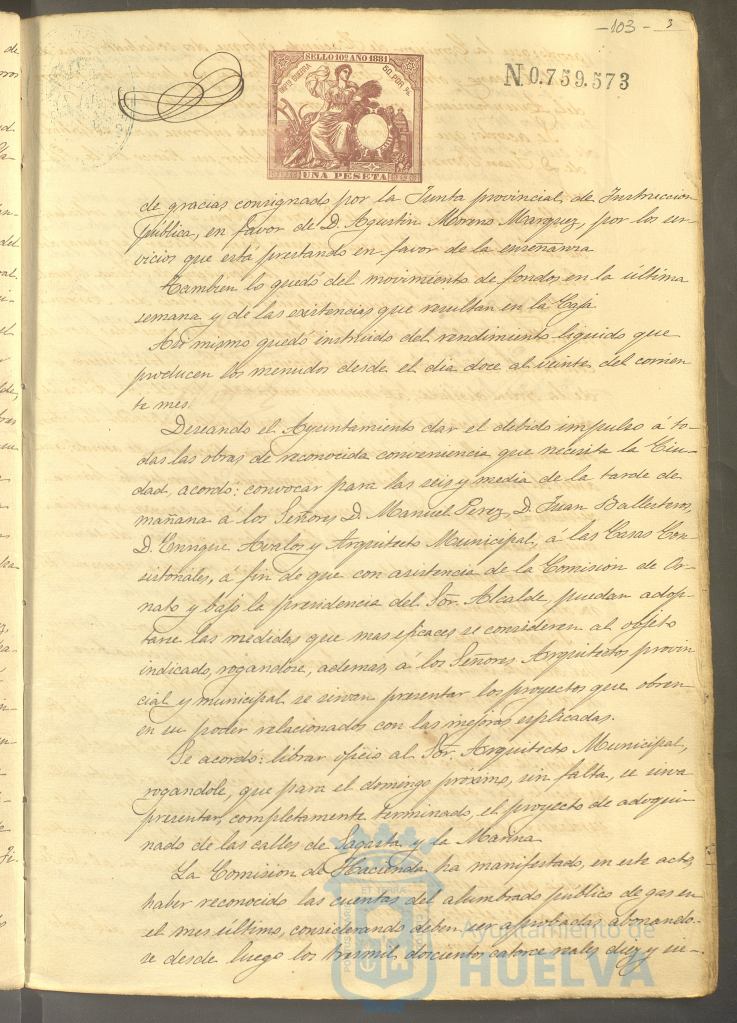 -103- 3
SELLO 10º AÑO 1881
IMPTO GUERRA
50 POR %
UNA PESETA
N0.759.573
de gracias consignado por la Junta provincial, de Instruccion
pública, en favor de D. Agustin Moreno Marquez, por los ser-
vicios que está prestando en favor de la enseñanza
Tambien lo quedó del movimiento de fondos en la última
semana y de las existencias que resultan en la Caja
Asi mismo quedó instruido del rendimiento liquido que
producen los menudos desde el dia doce al veinte del corrien
te mes.
Deseando el Ayuntamiento dar el debido impulso á to-
das las obras de reconocida conveniencia que necesita la Ciu-
dad, acordó: convocar para las seis y media de la tarde de
mañana á los Señores D. Manuel Perez, D. Juan Ballesteros,
D. Enrique Avalos y Arquitecto Municipal, á las Casas Con
sistoriales, á fin de que con asistencia de la Comision de Or-
nato y bajo la presidencia del Sor. Alcalde, puedan adop-
tarse las medidas que mas eficaces se consideren al objeto
indicado, rogandose, ademas, á los Señores Arquitectos provin
cial y municipal se sirvan presentar los proyectos que obren
en su poder relacionados con las mejoras esplicadas.
Se acordó: librar oficio al Sor. Arquitecto Municipal,
rogandole, que para el domingo próximo, sin falta, se sirva
presentar, completamente terminado, el proyecto de adoqui-
nado de las calles de Sagasta y la Marina
La Comision de Hacienda ha manifestado, en este acto,
haber reconocido las cuentas del alumbrado público de gas en
el mes último, considerando deben ser aprobadas, abonando-
se desde luego los tresmil doscientos catorce reales diez y se-
Ayuntamiento de
HUELVA